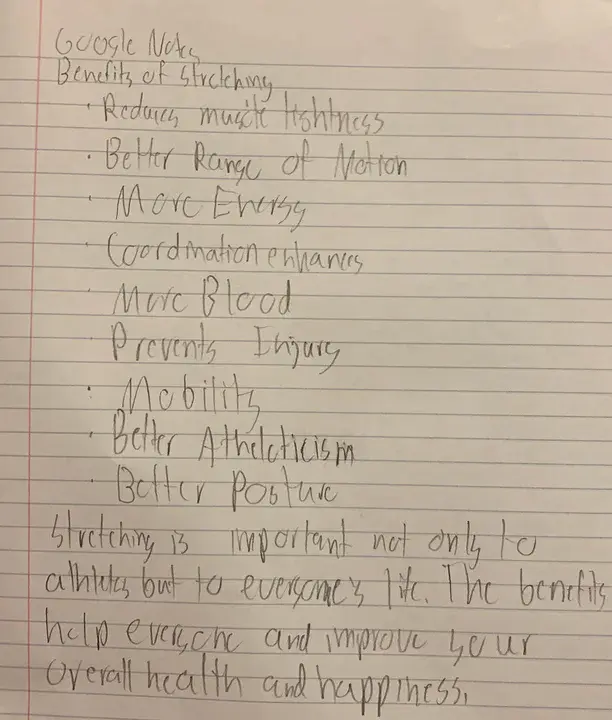 Google Notes
Benefits of stretching
· Reduces muscle tightness
· Better Range of Motion
· More Energy
· Coordination enhances
· More Blood
Prevents Injury
· Mobility
· Better Atheleticism
· Better Posture
Stretching is important not only to
athletes but to everyone's life. The benefits
help everyone and improve your
overall health and happiness.